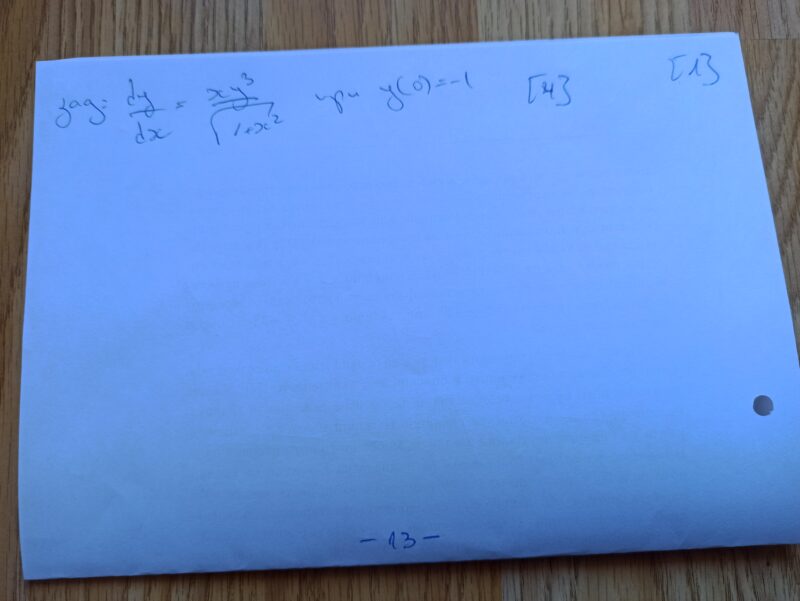 зад: dy/dx = xy³/√1+x² при y(0)=-1 [4] [1]
- 13 -